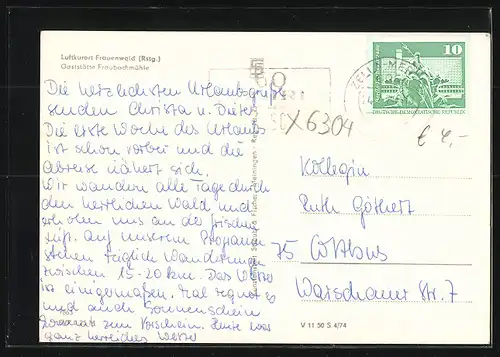 Luftkurort Frauenwald (Rstg.)
Gaststätte Fraubachmühle
Die herzlichsten Urlaubsgrüße
senden Christa u. Dieter.
Die erste Woche des Urlaubs
ist schon vorbei und die
Abreise nähert sich.
Wir wandern alle Tage durch
den herrlichen Wald und
erholen uns an der frischen
Luft. Auf unserem Programm
stehen täglich Wanderungen
zwischen 15-20 km. Das Wetter
ist einigermaßen. Mal regnet es
und auch Sonnenschein
kommt zum Vorschein. Heute war
ganz herrliches Wetter
ZELLA-MEHLIS
10
DEUTSCHE DEMOKRATISCHE REPUBLIK
X6304
€ 4,-
Kollegin
Ruth Göthert
75 Cottbus
Warschauer Str. 7
V 11 50 S 4/74